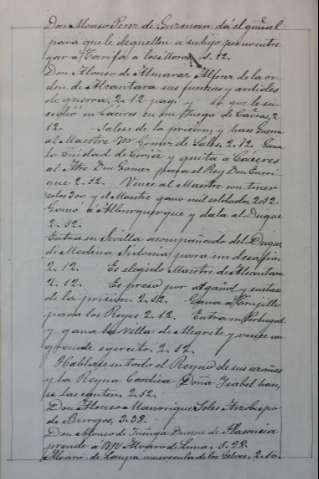 Don Alonso Perez de Guzman, da el puñal
para que le deguellen a su hijo, por no entre
gar a Tarifa a los Moros, 1. 12.
Don Alonso de Monroy Alferez de la or
den de Alcantara sus fuerzas y ardides
de guerra, 2. 12 pag. y lo que le su
cedio en Caceres en un juego de Cañas, 2
12. Salese de la prision, y hace Guerra
al Maestre Dn Gomez de Solis, 2. 12. Gana
la Ciudad de Coria y quita a Caceres
al Mtre Don Gomez para el Rey Don Enrri
que 2. 12. Vence al Maestre con tener
solos 300 y el Maestre gano mil soldados 2. 12.
Gano a Alburquerque y dala al Duque
2. 12.
Entra en Sevilla acompañado del Duque
de Medina Sidonia para un desafio
2. 12. Es elegido Maestre de Alcantara
2. 12. Es preso por engaño y sueltase
de la prision 2. 12. Gana a Trujillo
para los Reyes 2. 12. Entra en Portugal
y gana la Villa de Alegrete y vence un
grande egercito, 2. 12.
Hablase en todo el Reyno de sus armas
y la Reyna Catolica Doña Isabel hace
se las canten 2. 12.
Don Alonso Manrrique Solis Arzobispo
de Burgos, 3. 38.
Don Alonso de Zuñiga Duque de Plasencia
prende a Dn Alvaro de Luna, 1. 28.
Alvaro de muerte de los Gelves, 2. 10.